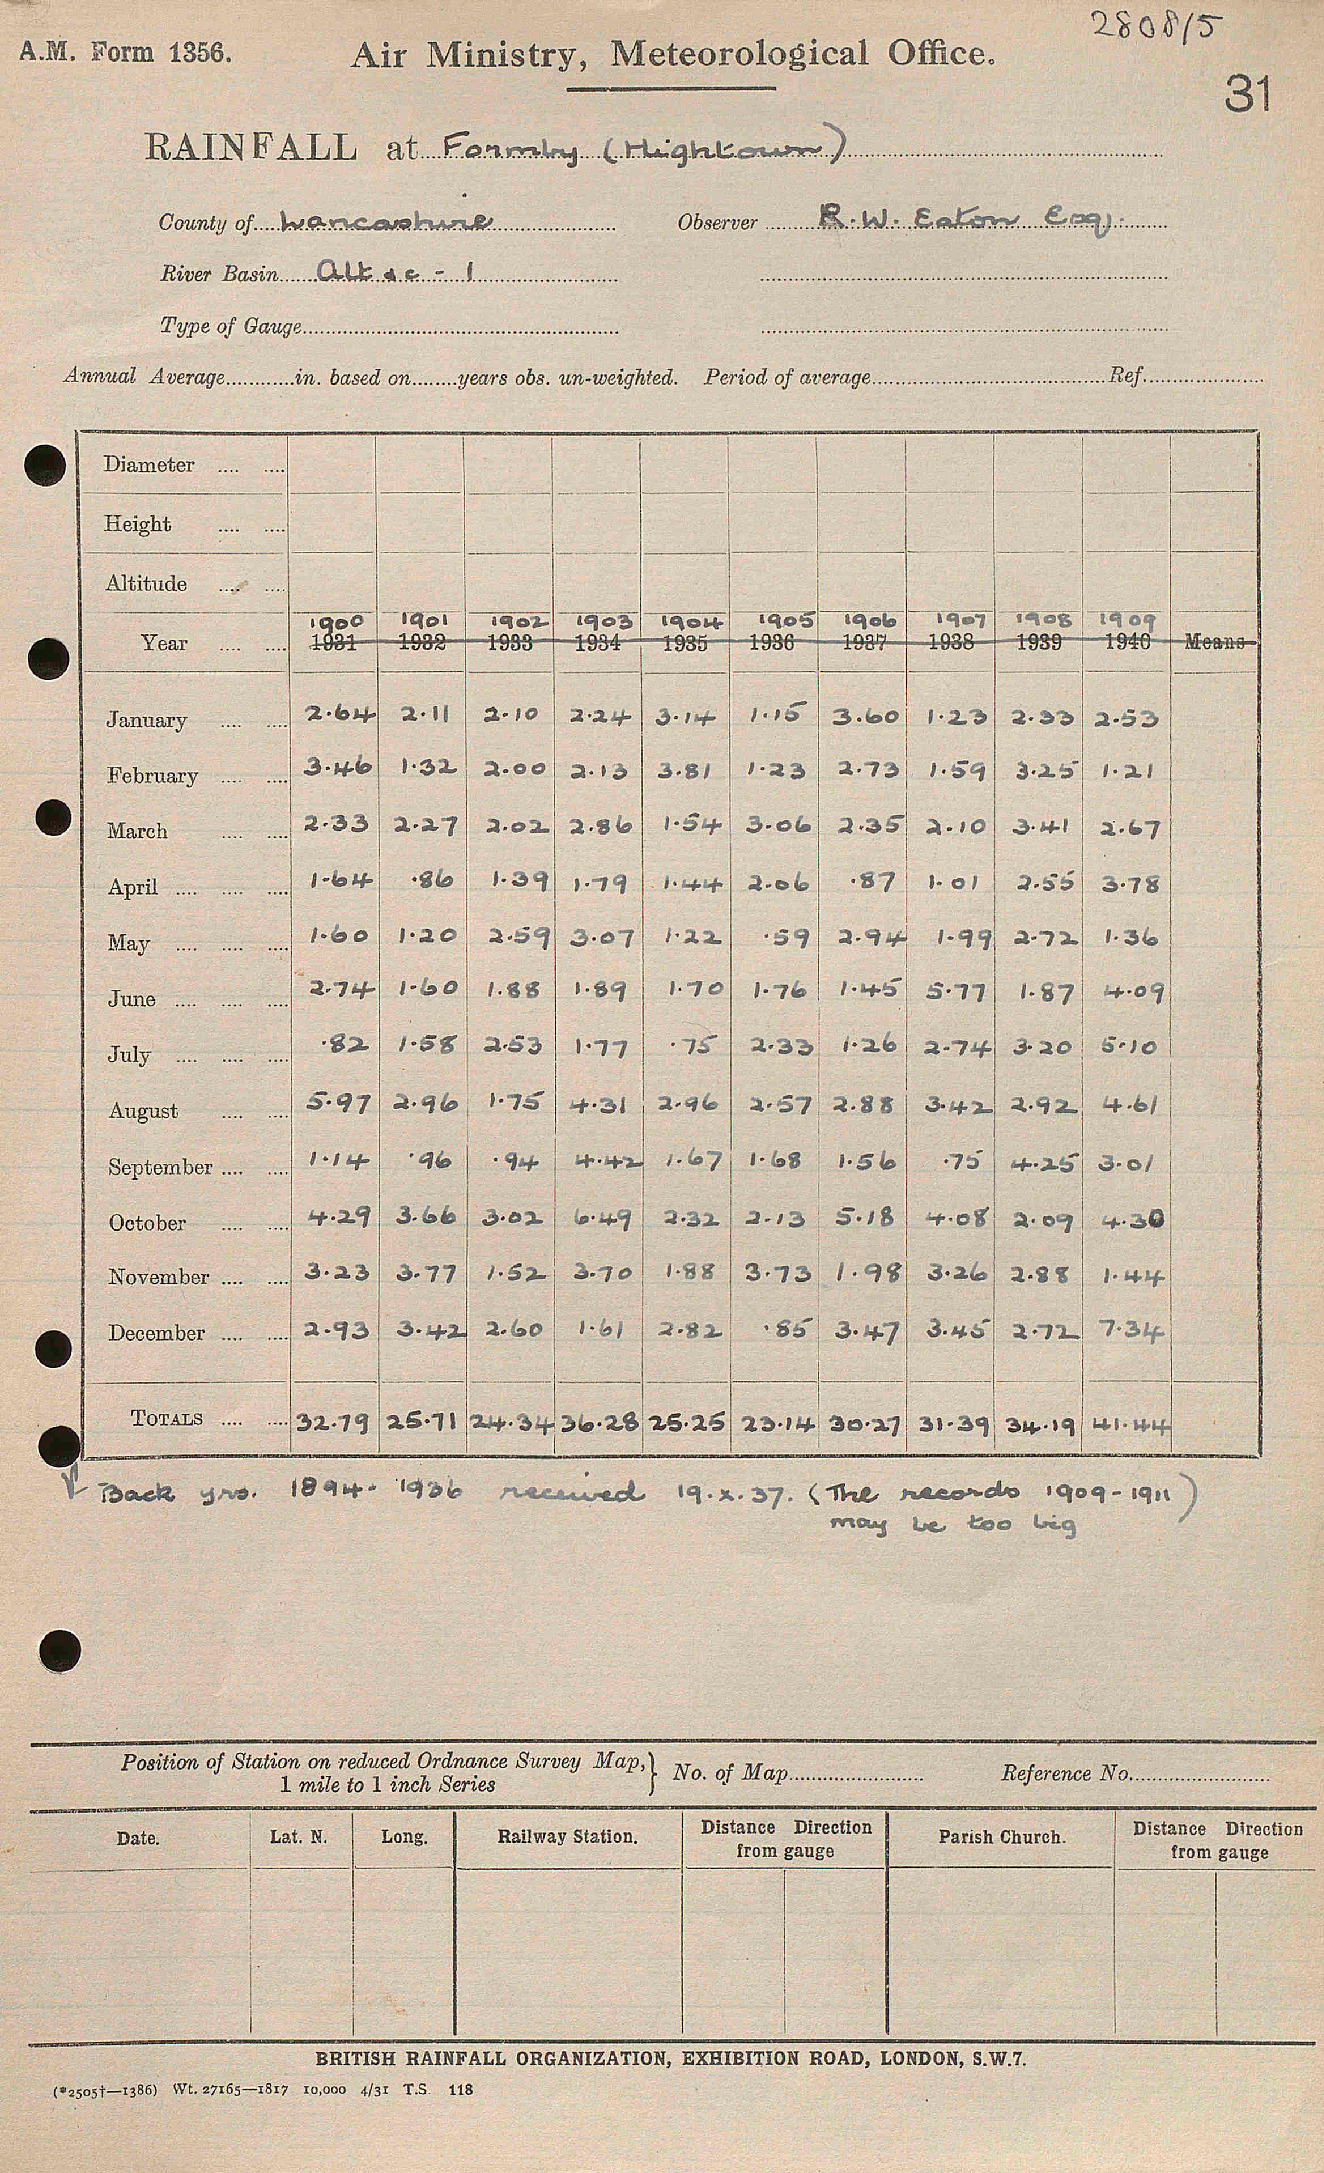 2808/5
A.M. Form 1356. Air Ministry, Meteorological Office.
31
RAINFALL at Formby (Hightown)
County of Lancashire Observer R.W. Eaton Esq.
River Basin Alt &c - 1
Type of Gauge
Annual Average in. based on years obs. un-weighted. Period of average Ref.
Diameter
Height
Altitude
1900 1901 1902 1903 1904 1905 1906 1907 1908 1909
Year 1931 1932 1933 1934 1935 1936 1937 1938 1939 1940 Means
January 2.64 2.11 2.10 2.24 3.14 1.15 3.60 1.23 2.33 2.53
February 3.46 1.32 2.00 2.13 3.81 1.23 2.73 1.59 3.25 1.21
March 2.33 2.27 2.02 2.86 1.54 3.06 2.35 2.10 3.41 2.67
April 1.64 .86 1.39 1.79 1.44 2.06 .87 1.01 2.55 3.78
May 1.60 1.20 2.59 3.07 1.22 .59 2.94 1.99 2.72 1.36
June 2.74 1.60 1.88 1.89 1.70 1.76 1.45 5.77 1.87 4.09
July .82 1.58 2.53 1.77 .75 2.33 1.26 2.74 3.20 5.10
August 5.97 2.96 1.75 4.31 2.96 2.57 2.88 3.42 2.92 4.61
September 1.14 .96 .94 4.42 1.67 1.68 1.56 .75 4.25 3.01
October 4.29 3.66 3.02 6.49 2.32 2.13 5.18 4.08 2.09 4.30
November 3.23 3.77 1.52 3.70 1.88 3.73 1.98 3.26 2.88 1.44
December 2.93 3.42 2.60 1.61 2.82 .85 3.47 3.45 2.72 7.34
TOTALS 32.79 25.71 24.34 36.28 25.25 23.14 30.27 31.39 34.19 41.44
Back yrs. 1894-1936 received 19.x.37. (The records 1909-1911)
may be too big
Position of Station on reduced Ordnance Survey Map,} No. of Map Reference No.
1 mile to 1 inch Series
Date. Lat. N. Long. Railway Station. Distance Direction from gauge Parish Church. Distance Direction from gauge
BRITISH RAINFALL ORGANIZATION, EXHIBITION ROAD, LONDON, S.W.7.
(*2505†—1386) Wt. 27165—1817 10,000 4/31 T.S. 118